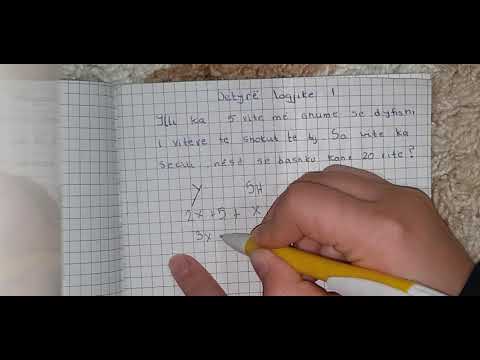 Detyrë logjike 1
Ylli ka 5 vite më shumë se dyfishi
i viteve të shokut të tij. Sa vite ka
secili nëse së bashku kanë 20 vite?
y SH
2x+5+ x
3x